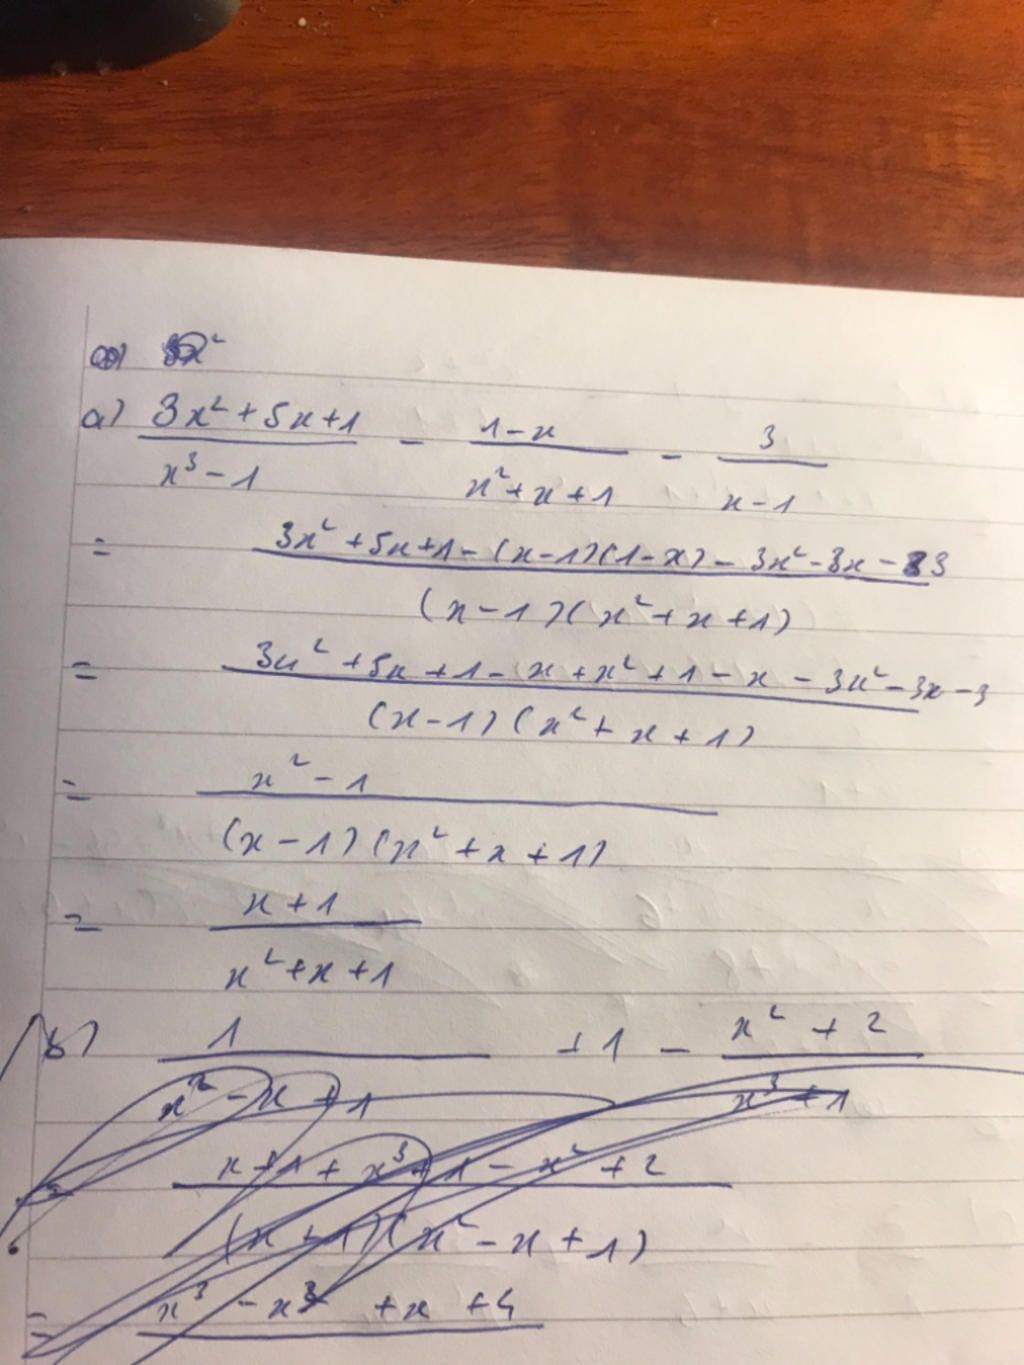 a) 3x² + 5x + 1 / x³ - 1 - 1 - x / x² + x + 1 - 3 / x - 1
= 3x² + 5x + 1 - (x - 1)(1 - x) - 3x² - 3x - 3 / (x - 1)(x² + x + 1)
= 3x² + 5x + 1 - x + x² + 1 - x - 3x² - 3x - 3 / (x - 1)(x² + x + 1)
= x² - 1 / (x - 1)(x² + x + 1)
= x + 1 / x² + x + 1
b) 1 / x² - x + 1 + 1 - x² + 2 / x³ + 1
= x + 1 + x³ + 1 - x² + 2 / (x + 1)(x² - x + 1)
= x³ - x² + x + 4